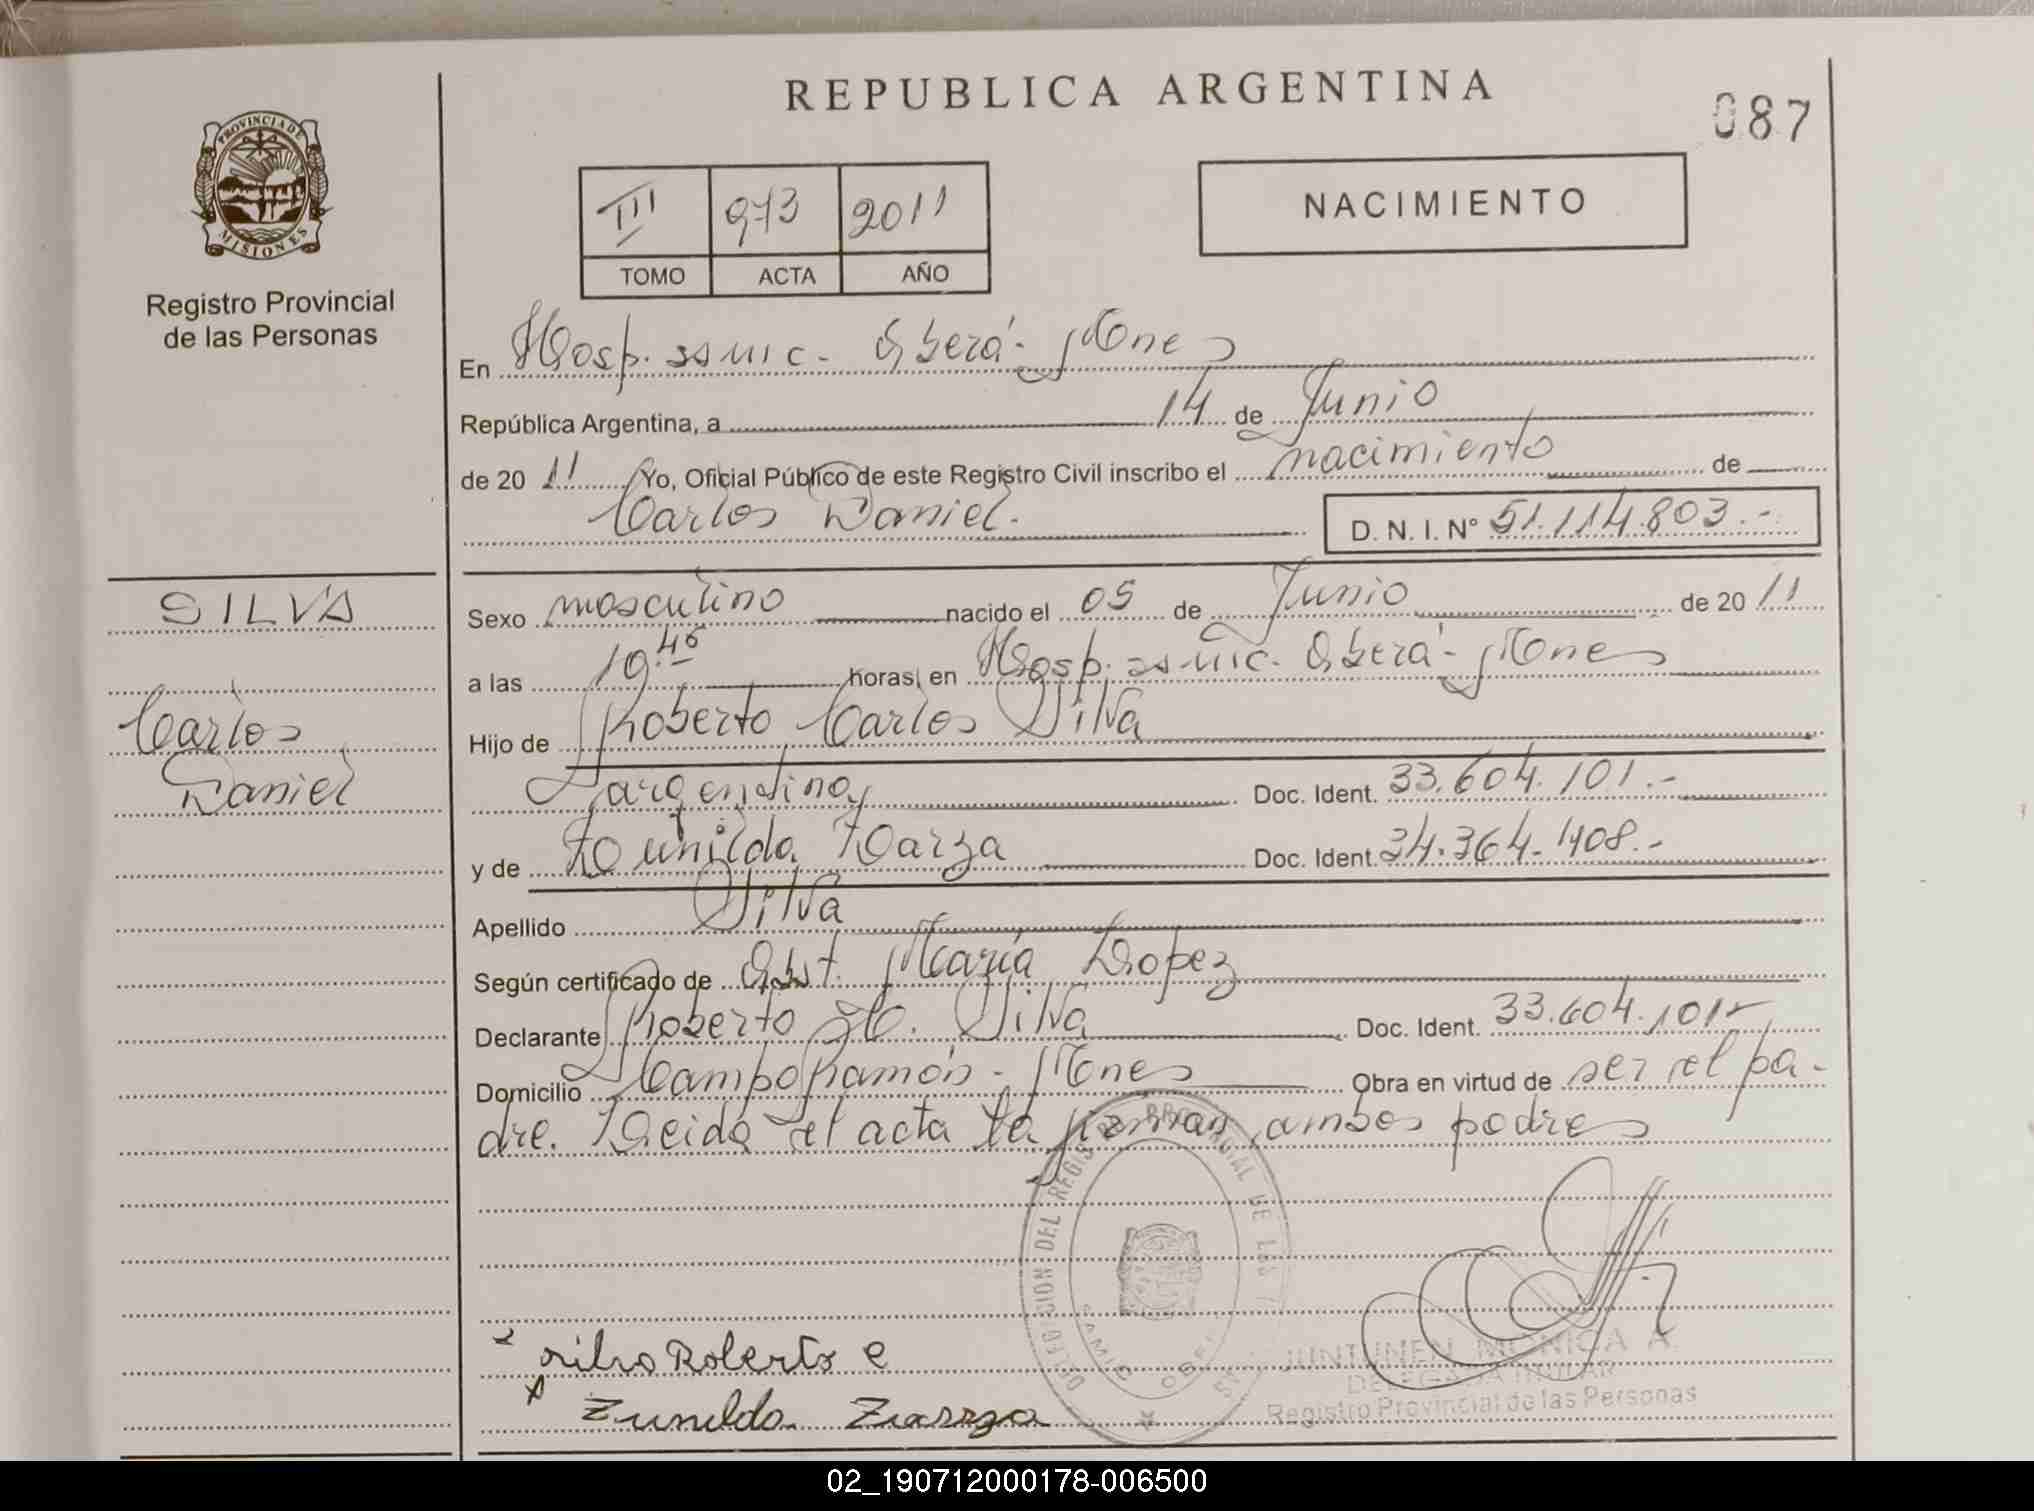 REPUBLICA ARGENTINA
087
PROVINCIA DE
MISIONES
Registro Provincial
de las Personas
III 973 2011
TOMO ACTA AÑO
NACIMIENTO
En Hosp. ssmic. Oberá - Mones
República Argentina, a 14 de Junio
de 20 11 Yo, Oficial Público de este Registro Civil inscribo el nacimiento de
Carlos Daniel.
D. N. I. N° 51.114.803.-
SILVA
Carlos
Daniel
Sexo masculino nacido el 05 de Junio de 20 11
a las 10.45 horas, en Hosp. ssmic. Oberá - Mones
Hijo de Roberto Carlos Silva
argentino, Doc. Ident. 33.604.101.-
y de Zunilda Zarza Doc. Ident. 34.364.408.-
Apellido Silva
Según certificado de Obst. María Lopez
Declarante Roberto C. Silva Doc. Ident. 33.604.101-
Domicilio Campo Ramón - Mones Obra en virtud de ser el pa-
dre. Leida el acta la firman ambos padres
Silva Roberto C
x Zunilda Zarza
DELEGACION DEL REGISTRO PROVINCIAL DE LAS
JUNTUNEN MONICA A.
DELEGADA TITULAR
Registro Provincial de las Personas
02_190712000178-006500